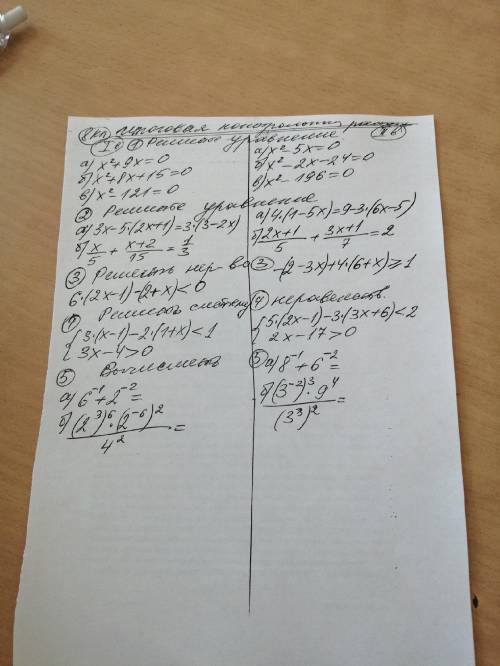 8 кл Итоговая контрольная работа
I в ① Решите уравнение II в
а) x²+9x=0
б) x²+8x+15=0
в) x²-121=0
② Решите уравнение
а) 3x-5·(2x+1)=3·(3-2x)
б) x/5 + x+2/15 = 1/3
③ Решить нер-ва
6·(2x-1)-(2+x)<0
④ Решить систему
{3·(x-1)-2·(1+x)<1
{3x-4>0
⑤ Вычислить
а) 6⁻¹+2⁻²=
б) (2³)⁶·(2⁻⁶)²/4² =
а) x²-5x=0
б) x²-2x-24=0
в) x²-196=0
а) 4·(1-5x)=9-3·(6x-5)
б) 2x+1/5 + 3x+1/7 = 2
③ -(2-3x)+4·(6+x)≥1
④ неравенств.
{5·(2x-1)-3·(3x+6)<2
{2x-17>0
⑤ а) 8⁻¹+6⁻²=
б) (3⁻²)³·9⁴/(3³)² =